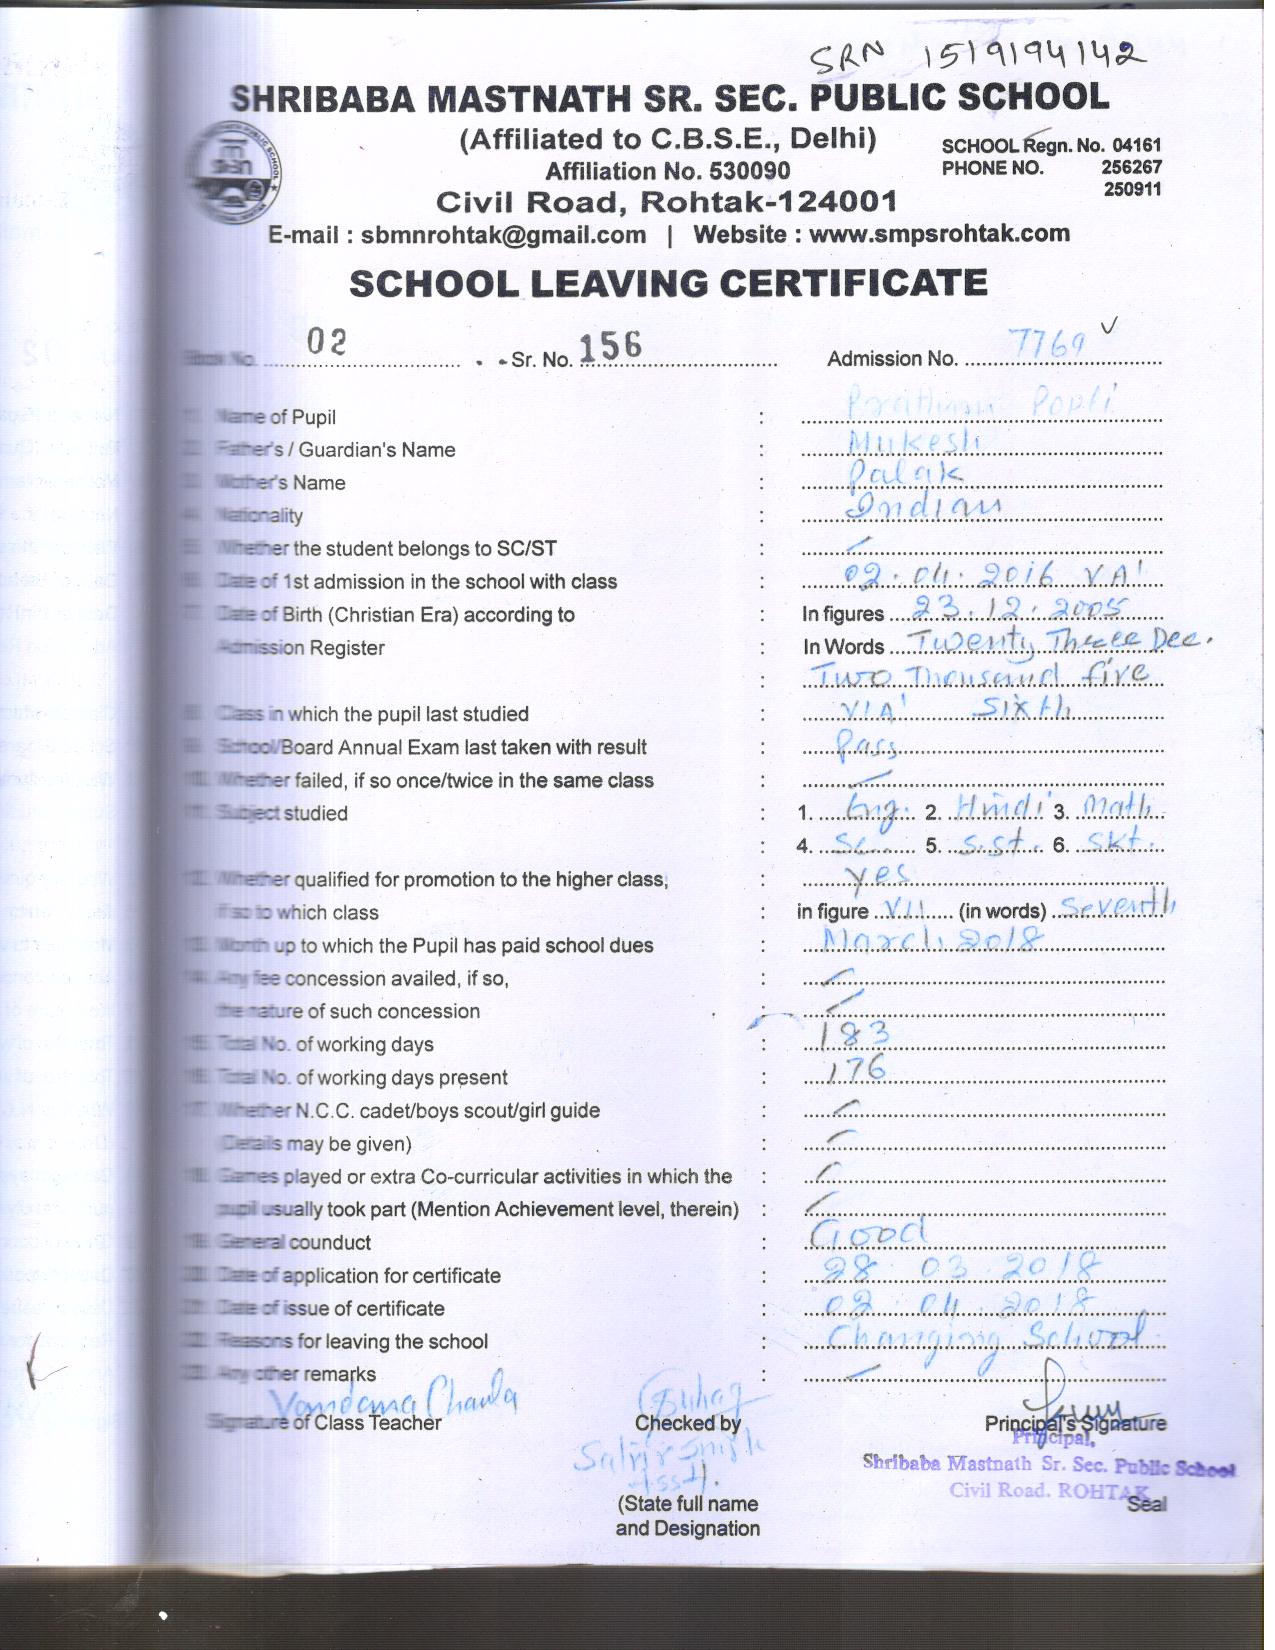 SRN 1519194142
SHRIBABA MASTNATH SR. SEC. PUBLIC SCHOOL
(Affiliated to C.B.S.E., Delhi)
SCHOOL Regn. No. 04161
Affiliation No. 530090
PHONE NO. 256267
250911
Civil Road, Rohtak-124001
E-mail : sbmnrohtak@gmail.com | Website : www.smpsrohtak.com
SCHOOL LEAVING CERTIFICATE
Book No. 02 Sr. No. 156 Admission No. 7769
1. Name of Pupil : Popli
2. Father's / Guardian's Name : Mukesh
3. Mother's Name : Palak
4. Nationality : Indian
5. Whether the student belongs to SC/ST :
6. Date of 1st admission in the school with class : 02.04.2016 VA'
7. Date of Birth (Christian Era) according to : In figures 23.12.2005
Admission Register : In Words Twenty Three Dec.
: Two Thousand five
8. Class in which the pupil last studied : VIA' Sixth
9. School/Board Annual Exam last taken with result : Pass
10. Whether failed, if so once/twice in the same class :
11. Subject studied : 1. Eng. 2. Hindi 3. Math
: 4. Sc. 5. S.St. 6. Skt.
12. Whether qualified for promotion to the higher class, : yes
if so to which class : in figure VII (in words) Seventh
13. Month up to which the Pupil has paid school dues : March, 2018
14. Any fee concession availed, if so, :
the nature of such concession :
15. Total No. of working days : 183
16. Total No. of working days present : 176
17. Whether N.C.C. cadet/boys scout/girl guide :
(Details may be given) :
18. Games played or extra Co-curricular activities in which the :
pupil usually took part (Mention Achievement level, therein) :
19. General counduct : Good
20. Date of application for certificate : 28.03.2018
21. Date of issue of certificate : 02.04.2018
22. Reasons for leaving the school : Changing School
23. Any other remarks :
Vandana Chawla
Signature of Class Teacher Checked by Principal's Signature
Principal,
Shribaba Mastnath Sr. Sec. Public School
Asstt.
Civil Road. ROHTAK
(State full name Seal
and Designation